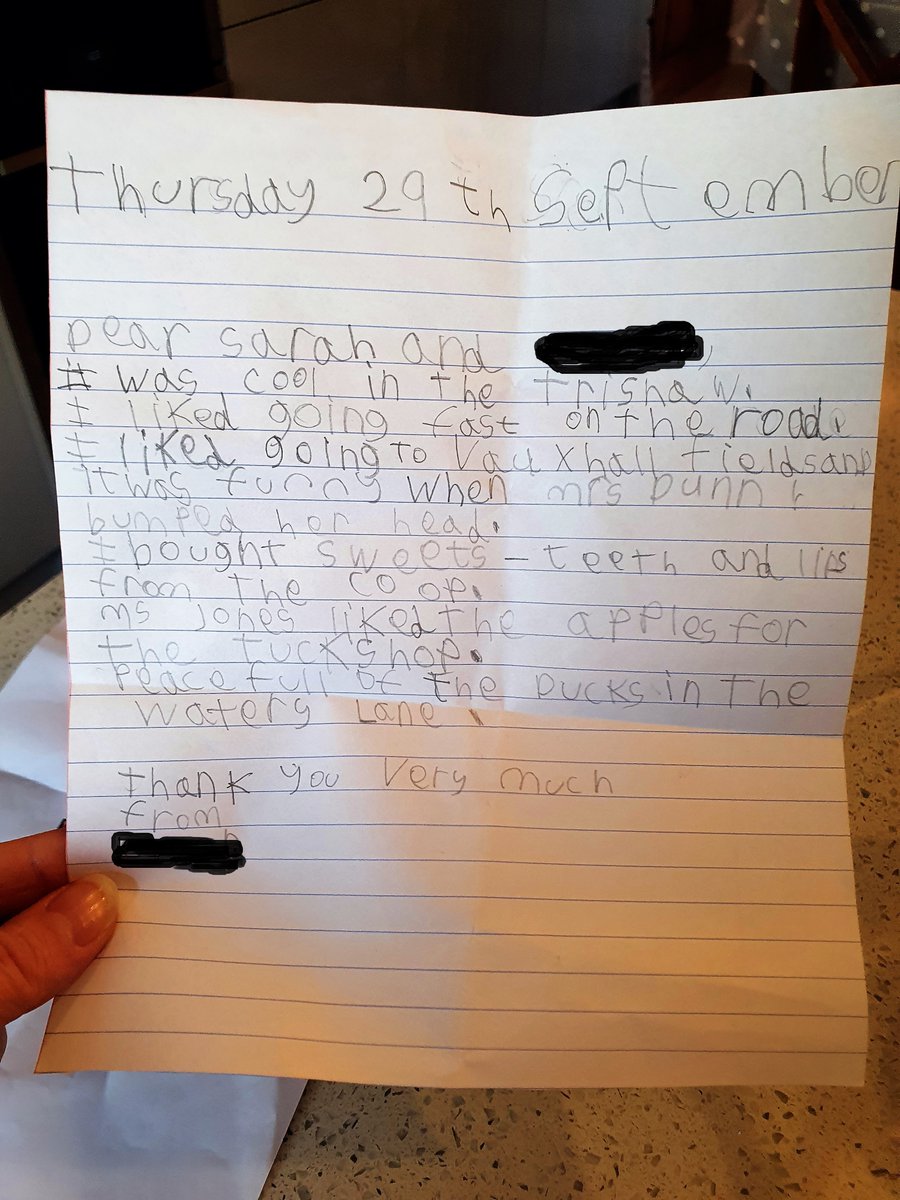 Thursday 29th September
Dear sarah and
It was cool in the trishaw.
I liked going fast on the road.
I liked going to Vauxhall fields and
it was funny when mrs Dunn
bumped her head.
I bought sweets - teeth and lips
from the co op.
Ms Jones liked the apples for
the tuckshop.
Peacefull of the Ducks in the
waters Lane
thank you very much
from